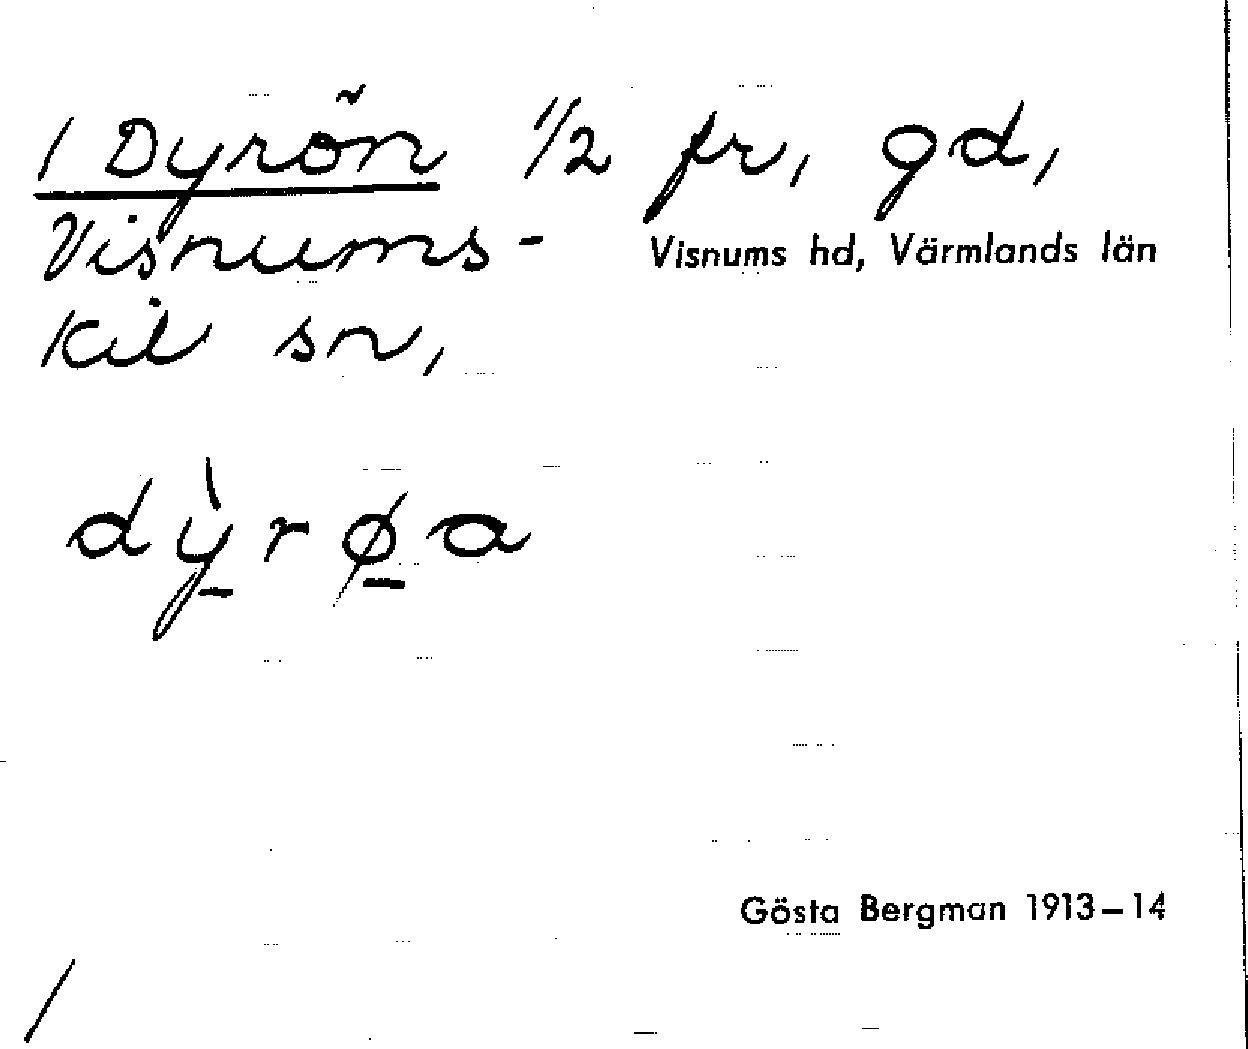 1 Dyrön 1/2 fr, gd,
Visnums- Visnums hd, Värmlands län
Kil sn,
dỳ̱rø̱a
Gösta Bergman 1913–14
/